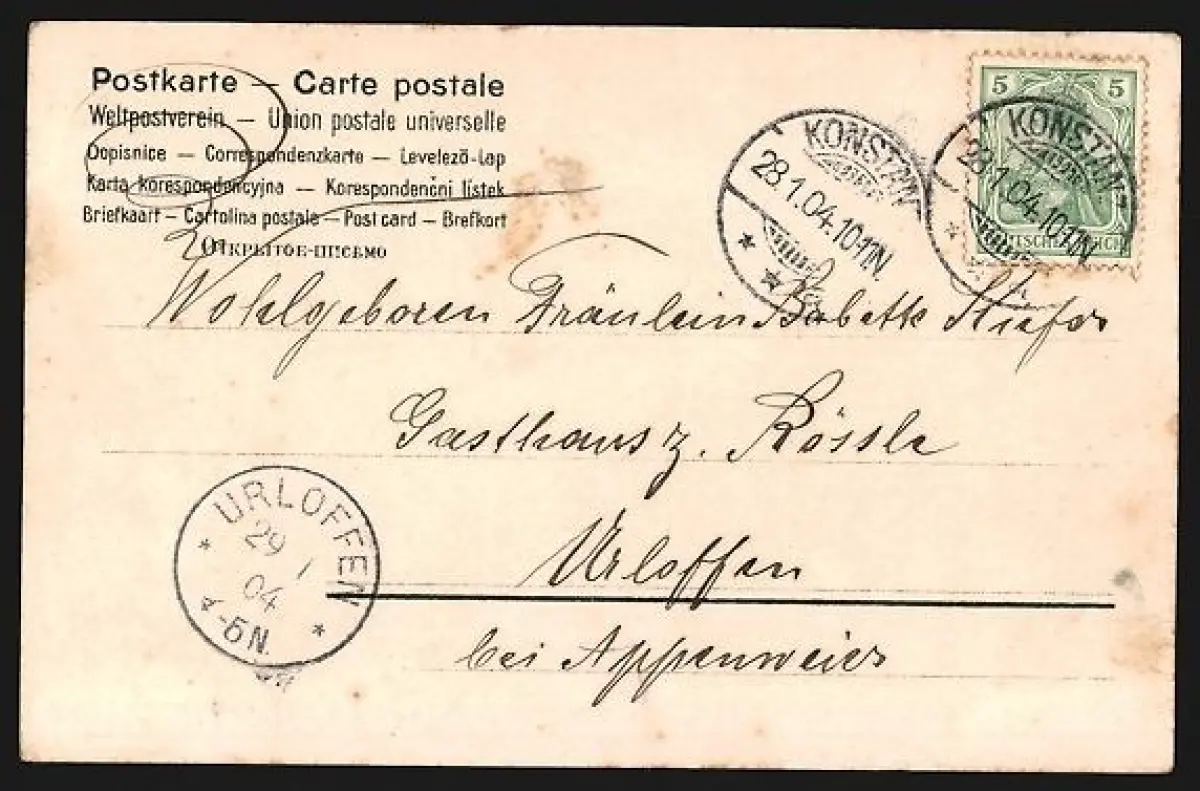 Postkarte – Carte postale
Weltpostverein – Union postale universelle
Dopisnice – Correspondenzkarte – Levelező-Lap
Karta korespondencyjna – Korespondenční lístek
Briefkaart – Cartolina postale – Post card – Brefkort
Открытое-письмо
5 5
KONSTANZ
28.1.04.10-11N.
KONSTANZ
28.1.04.10-11N.
DEUTSCHES REICH
Wohlgeboren Fräulein Babette
Gasthaus z. Rössle
Urloffen
bei Appenweier
URLOFFEN
29 1
04
4-5N.